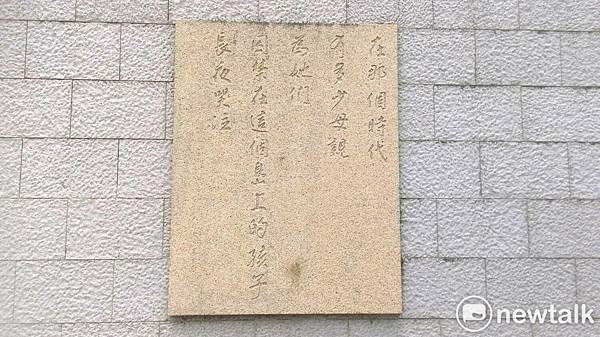 在那個時代
有多少母親
為她們
囚禁在這個島上的孩子
長夜哭泣
newtalk